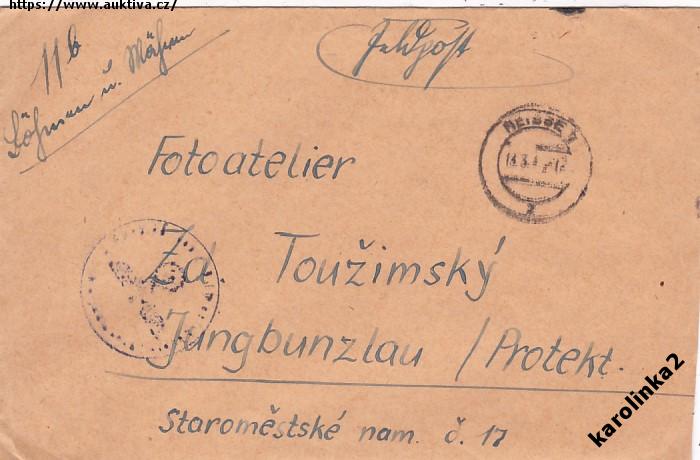 https://www.auktiva.cz/
11b
Böhmen u. Mähren
Feldpost
NEISSE 1
Fotoatelier
Zd Toužimský
Jungbunzlau /Protekt.
Staroměstské nam. č. 17
karolinka2